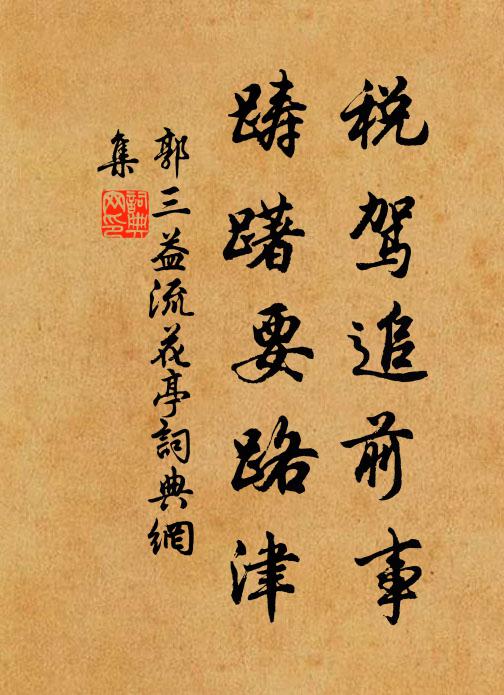 税驾追前事
踌躇要路津
郭三益流花亭詞典網
集
詞典網印